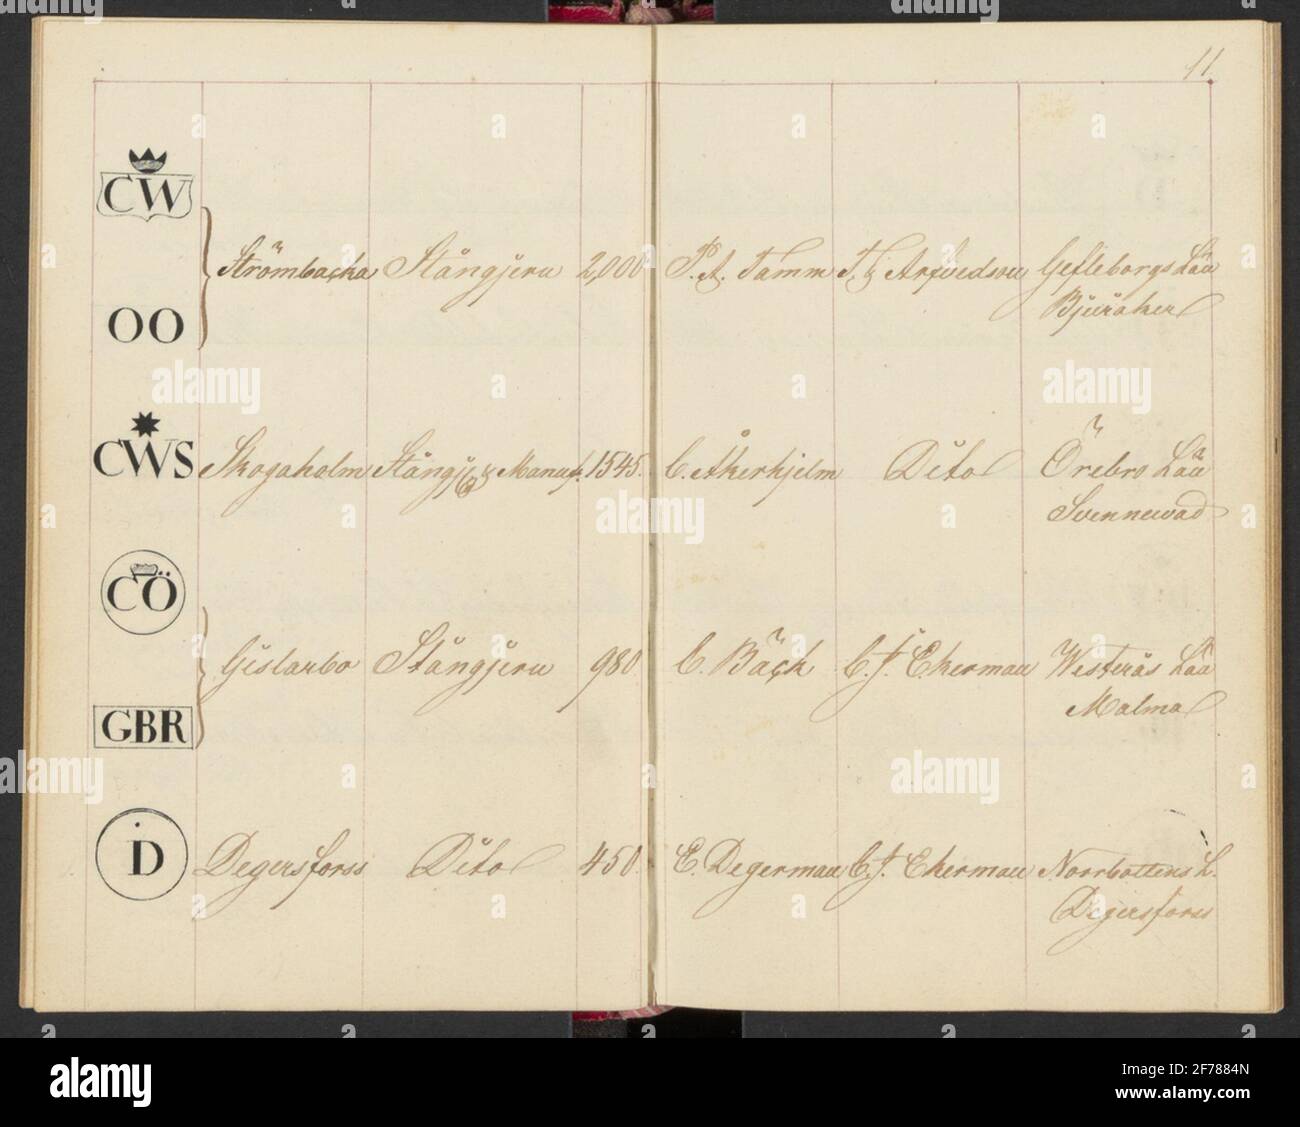 11.
CW
Strömbacka Stångjern 2,000 P. A. Tamm T. & Arfvedson Gefleborgs Län
Bjuråker
OO
CWS Skogaholm Stångj. & Manuf. 1545. C. Åkerhjelm Dito Örebro Län
Svennevad
CÖ
Gislarbo Stångjern 980 C. Bäck C. J. Ekerman Westerås Län
Malma
GBR
D Degersforss Dito 450. E. Degerman C. J. Ekerman Norrbottens L.
Degersforss
alamy
Image ID: 2F7884N
www.alamy.com